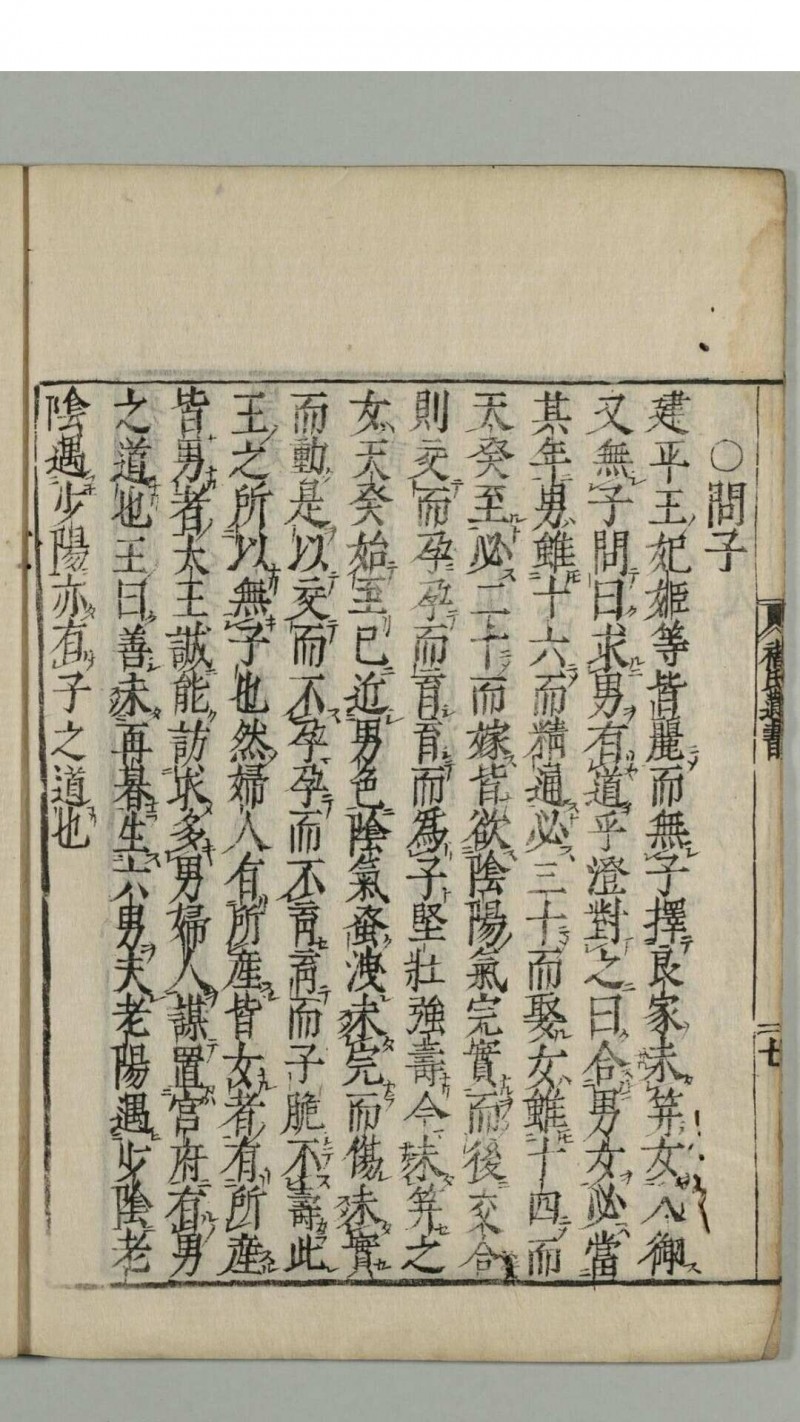 褚氏遺書
十七
〇問子
建平王妃姬等皆麗而無子擇良家未笄女入御
又無子問曰求男有道乎澄對之曰合男女必當
其年男雖十六而精通必三十而娶女雖十四而
天癸至必二十而嫁皆欲陰陽氣完實而後交合
則交而孕孕而育育而爲子堅壯強壽今未笄之
女天癸始至已近男色陰氣蚤洩未完而傷未實
而動是以交而不孕孕而不育育而子脆不壽此
王之所以無子也然婦人有所產皆女者有所產
皆男者大王誠能訪求多男婦人謀置宮府有男
之道也王曰善未再朞生六男夫老陽遇少陰老
陰遇少陽亦有子之道也